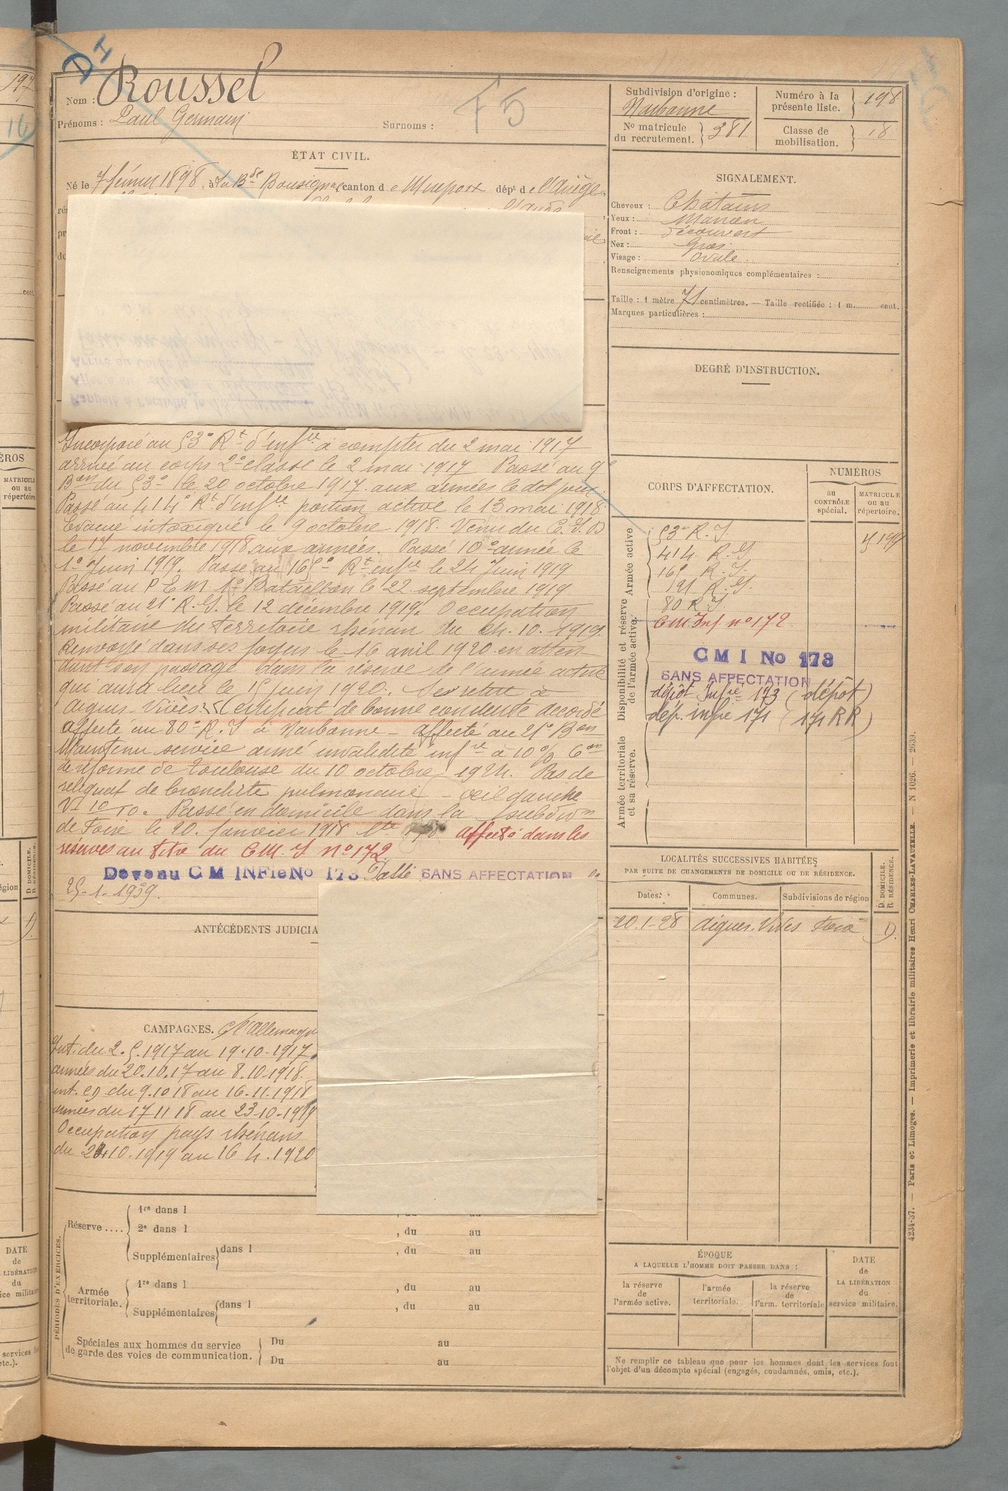 Nom : Roussel
Prénoms : Paul Germain
Surnoms :
F5
Subdivision d'origine :
Narbonne
N° matricule du recrutement. 381
Numéro à la présente liste. 198
Classe de mobilisation. 18
ÉTAT CIVIL.
Né le 7 février 1898, à La Bde canton de Mirepoix dépt de l'Ariège
SIGNALEMENT.
Cheveux : Châtains
Yeux : Marron
Front : découvert
Nez : Gros
Visage : Ovale
Renseignements physionomiques complémentaires :
Taille : 1 mètre 71 centimètres. — Taille rectifiée : 1 m. cent.
Marques particulières :
DEGRÉ D'INSTRUCTION.
Incorporé au 53e Rt d'infie à compter du 2 mai 1917
arrivé au corps 2e classe le 2 mai 1917 Passé au 9e
Bon du 53e le 20 octobre 1917 aux armées le dit jour
Passé au 414e Rt d'infie portion active le 13 mai 1918
Evacué intoxiqué le 9 octobre 1918. Venu du C.I.D
le 17 novembre 1918 aux armées. Passé 10e armée le
1er Juin 1919. Passé au 16e Rt infie le 24 Juin 1919
Passé au P E M 1er Bataillon le 22 septembre 1919
Passé au 21e R.G. le 12 décembre 1919. Occupation
militaire du territoire rhénan du 24.10.1919
Renvoyé dans ses foyers le 16 avril 1920 en atten
dant son passage dans la réserve de l'armée active
qui aura lieu le 15 juin 1920. Se retire à
Aigues-Vives. Certificat de bonne conduite accordé
Affecté au 80e R.I à Narbonne - affecté au 21e Bon
Maintenu service armé invalidité infre à 10% Con
de réforme de Toulouse du 10 octobre 1924. Pas de
reliquat de bronchite pulmonaire oeil gauche
V= 10/10. Passé en domicile dans la subdivon
de Foix le 20 Janvier 1928 affecté dans les
réserves au titre du C.M.I n° 172
Devenu C M INFie No 173 SANS AFFECTATION
25-1-1939.
CORPS D'AFFECTATION.
NUMÉROS
au contrôle spécial.
MATRICULE ou au répertoire.
Armée active
Disponibilité et réserve de l'armée active.
Armée territoriale et sa réserve.
53e R.I
414 R.I
16e R.I
191 R.G.
80 R I
C.M. Inf n° 172
C M I No 173
SANS AFFECTATION
dépôt Infie 173 (dépôt)
dép. infie 171 (171 RR)
ANTÉCÉDENTS JUDICIA
CAMPAGNES. Cte Allemagne
Int. du 2.5.1917 au 19-10-1917
armées du 20.10.17 au 8.10.1918
int. cg du 9.10 18 au 16.11.1918
armées du 17 11 18 au 23-10-1919
Occupation pays rhénans
du 24.10.1919 au 16 4.1920
LOCALITÉS SUCCESSIVES HABITÉES
PAR SUITE DE CHANGEMENTS DE DOMICILE OU DE RÉSIDENCE.
Dates. Communes. Subdivisions de région D. DOMICILE. R. RÉSIDENCE.
20.1-28 Aigues-Vives Foix D
PÉRIODES D'EXERCICES.
Réserve....
1re dans l
2e dans l , du au
Supplémentaires dans l , du au
Armée territoriale.
1re dans l , du au
Supplémentaires dans l , du au
Spéciales aux hommes du service de garde des voies de communication.
Du au
Du au
ÉPOQUE
A LAQUELLE L'HOMME DOIT PASSER DANS :
la réserve de l'armée active.
l'armée territoriale.
la réserve de l'arm. territoriale
DATE de LA LIBÉRATION du service militaire.
Ne remplir ce tableau que pour les hommes dont les services font l'objet d'un décompte spécial (engagés, condamnés, omis, etc.).
4234-37. — Paris et Limoges. — Imprimerie et librairie militaires Henri CHARLES-LAVAUZELLE. — N 1026. — 2633.